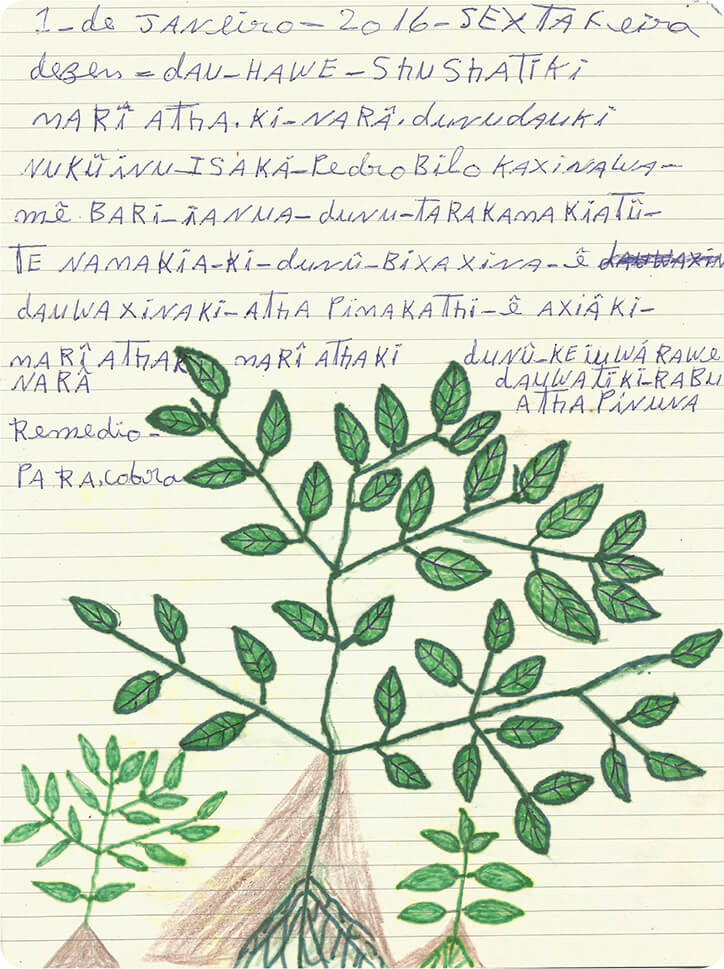 1-de JANEIRO-2016-SEXTA Feira
dezen = DAU-HAWE-SHUSHATIKI
MARÎ ATHA. KI-NARÂ. dunudauki
NUKŨINU-ISAKÁ-Pedro Bilo KAXINAWA-
mê BARI-IANUA-dunu-TARAKAMAKIATŨ-
TE NAMAKĨA-KI-dunû-BIXAXINA-ê
dAUWAXINAKI-ATHA PIMAKATHI-ê AXIÂKI-
MARÎ ATHAK MARÎ ATHAKI DUNÛ-KEIUWÁ RAWE
NARÂ DAUWATIKI-RABU
ATHA PINUNA
Remedio-
PARA. cobra